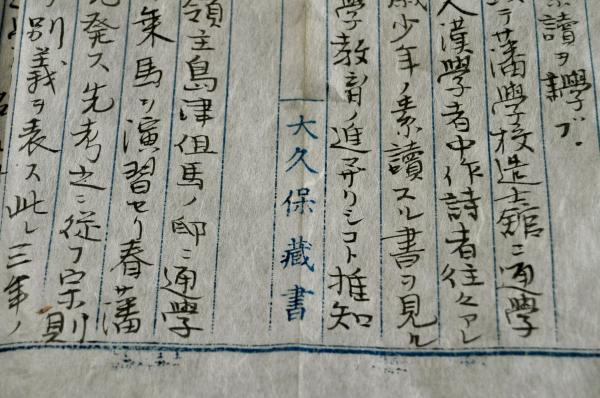 讀ヲ學ブ
テ藩學校造士館ニ通學
人漢學者中作詩者往々アレ
歳少年ノ素讀スル書ヲ見ル
學教育ノ進リシコト推知
大久保藏書
領主島津但馬ノ邸ニ通學
乘馬ヲ演習セリ春藩
発ス先考之ニ從フ宗則
別義ヲ表ス此レ三年ノ